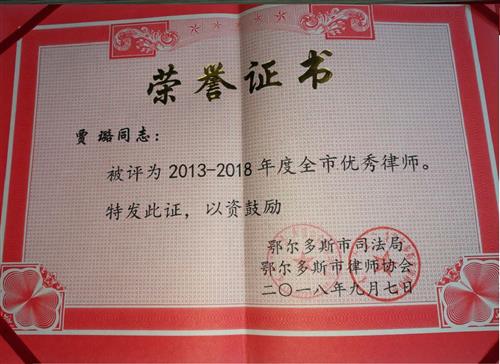 荣誉证书
贾璐同志：
被评为2013-2018年度全市优秀律师。
特发此证，以资鼓励
鄂尔多斯市司法局
鄂尔多斯市律师协会
二〇一八年九月七日